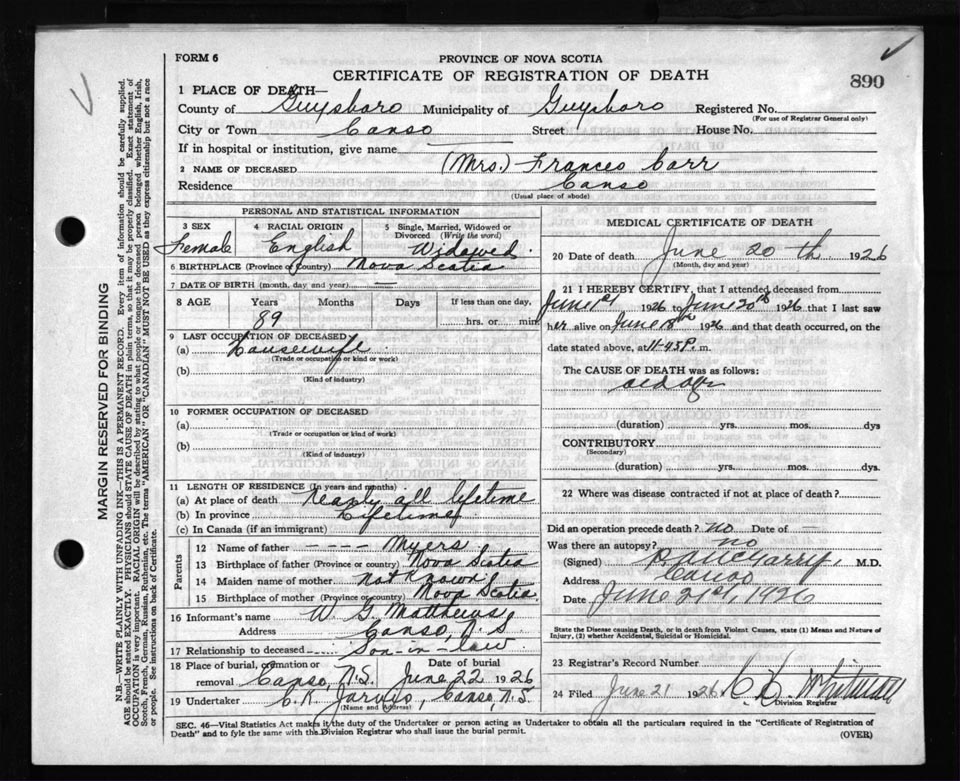 FORM 6
PROVINCE OF NOVA SCOTIA
CERTIFICATE OF REGISTRATION OF DEATH
890
1 PLACE OF DEATH—
County of Guysboro Municipality of Guysboro Registered No.
(For use of Registrar General only)
City or Town Canso Street House No.
If in hospital or institution, give name
2 NAME OF DECEASED (Mrs.) Frances Carr
Residence Canso
(Usual place of abode)
PERSONAL AND STATISTICAL INFORMATION
3 SEX 4 RACIAL ORIGIN 5 Single, Married, Widowed or Divorced (Write the word)
Female English Widowed
6 BIRTHPLACE (Province or Country) Nova Scotia
7 DATE OF BIRTH (month, day and year) —
8 AGE Years Months Days If less than one day,
89 hrs. or min.
9 LAST OCCUPATION OF DECEASED
(a) Housewife
(Trade or occupation or kind or work)
(b)
(Kind of industry)
10 FORMER OCCUPATION OF DECEASED
(a)
(Trade or occupation or kind of work)
(b)
(Kind of industry)
11 LENGTH OF RESIDENCE (In years and months)
(a) At place of death Nearly all lifetime
(b) In province Lifetime
(c) In Canada (if an immigrant)
Parents
12 Name of father - - - - Myers
13 Birthplace of father (Province or country) Nova Scotia
14 Maiden name of mother Not Known
15 Birthplace of mother (Province or country) Nova Scotia
16 Informant's name W. G. Matthews
Address Canso, N.S.
17 Relationship to deceased Son-in-law
18 Place of burial, cremation or removal Canso, N.S. Date of burial June 22 1926
19 Undertaker C. R. Jarvis, Canso, N.S.
(Name and Address)
MEDICAL CERTIFICATE OF DEATH
20 Date of death June 20th 1926
(Month, day and year)
21 I HEREBY CERTIFY, that I attended deceased from
June 1st 1926 to June 20th 1926 that I last saw
her alive on June 18th 1926 and that death occurred, on the
date stated above, at 11-45 P. m.
The CAUSE OF DEATH was as follows:
old age
(duration) yrs. mos. dys
CONTRIBUTORY
(Secondary)
(duration) yrs. mos. dys.
22 Where was disease contracted if not at place of death?
Did an operation precede death? no Date of —
Was there an autopsy? no
(Signed) M.D.
Address Canso
Date June 21st, 1926
State the Disease causing Death, or in death from Violent Causes, state (1) Means and Nature of
Injury, (2) whether Accidental, Suicidal or Homicidal.
23 Registrar's Record Number
24 Filed June 21 1926
Division Registrar
SEC. 46—Vital Statistics Act makes it the duty of the Undertaker or person acting as Undertaker to obtain all the particulars required in the "Certificate of Registration of
Death" and to fyle the same with the Division Registrar who shall issue the burial permit.
(OVER)
MARGIN RESERVED FOR BINDING
N.B.—WRITE PLAINLY WITH UNFADING INK—THIS IS A PERMANENT RECORD. Every item of information should be carefully supplied.
AGE should be stated EXACTLY. PHYSICIANS should STATE CAUSE OF DEATH in plain terms, so that it may be properly classified. Exact statement of
OCCUPATION is very important. RACIAL ORIGIN will be described by stating to what people or tongue the deceased person belonged whether English, Irish,
Scotch, French, German, Russian, Ruthenian, etc. The terms "AMERICAN" or "CANADIAN" MUST NOT BE USED as they express citizenship but not a race
or people. See instructions on back of Certificate.